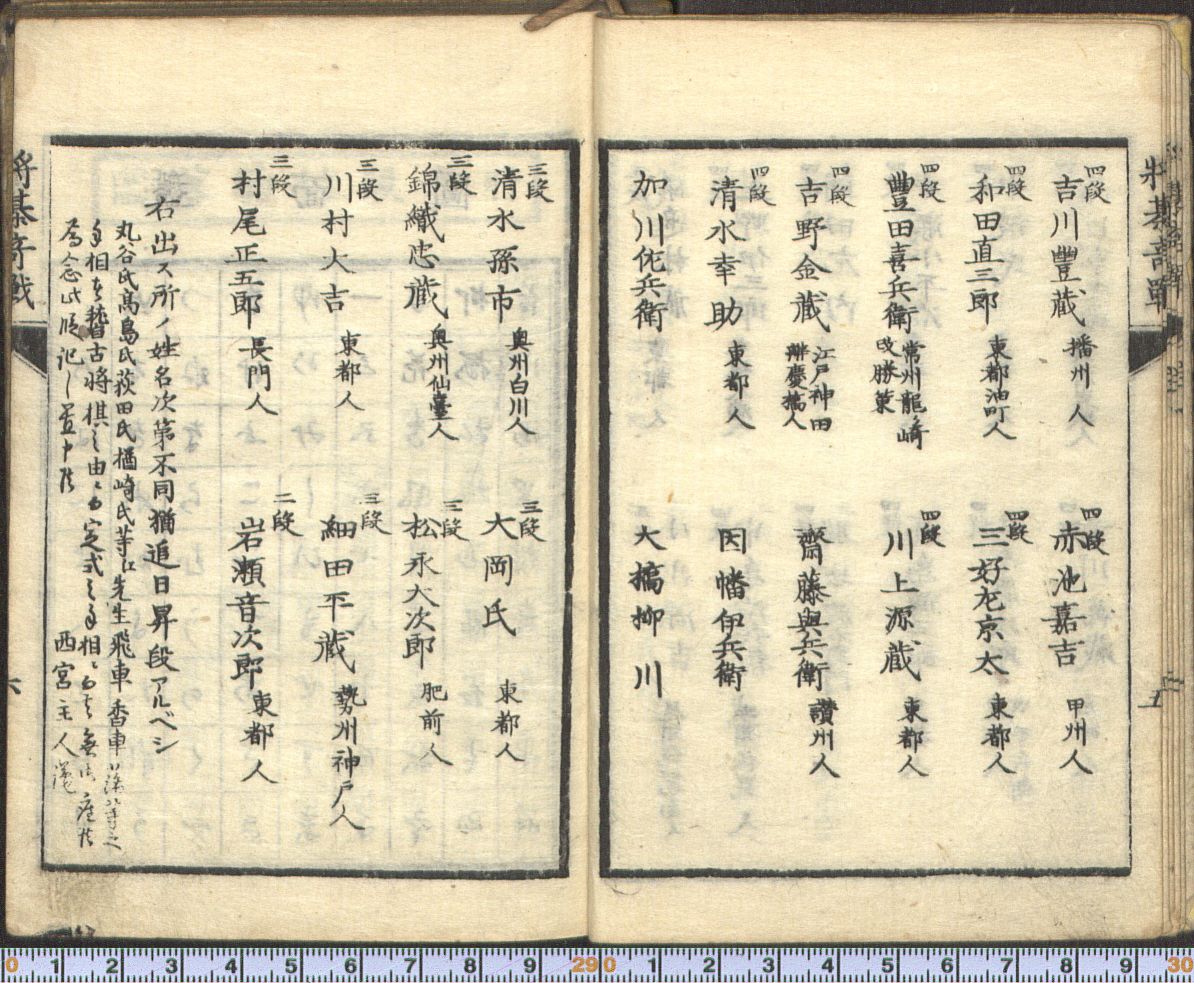 四段
吉川豊蔵 播州 人
四段
和田直三郎 東都油町人
四段
豊田喜兵衛 常州龍ヶ崎
改勝策
四段
吉野金蔵 江戸神田
非慶橋人
四段
清水幸助 東都人
加川佐兵衛
四段
赤池嘉吉 甲州人
四段
三好左京太 東都人
四段
川上源蔵 東都人
齋藤與兵衛 讃州人
因幡伊兵衛
大橋柳川
五
三段
清水孫市 奥州白川人
三段
錦織忠蔵 奥州仙臺人
三段
川村大吉 東都人
三段
村尾正五郎 長門人
三段
大岡氏 東都人
三段
松永大次郎 肥前人
三段
細田平蔵 勢州神戸人
二段
岩瀬音次郎 東都人
右出ス所ノ姓名次第不同猶追日昇段アルベシ
丸谷氏高島氏荻田氏楢崎氏等江先生飛車香車
相 稽古将棋之由 定式之 相
為念此段記し置申候
西宮主人
将棊奇戦
六